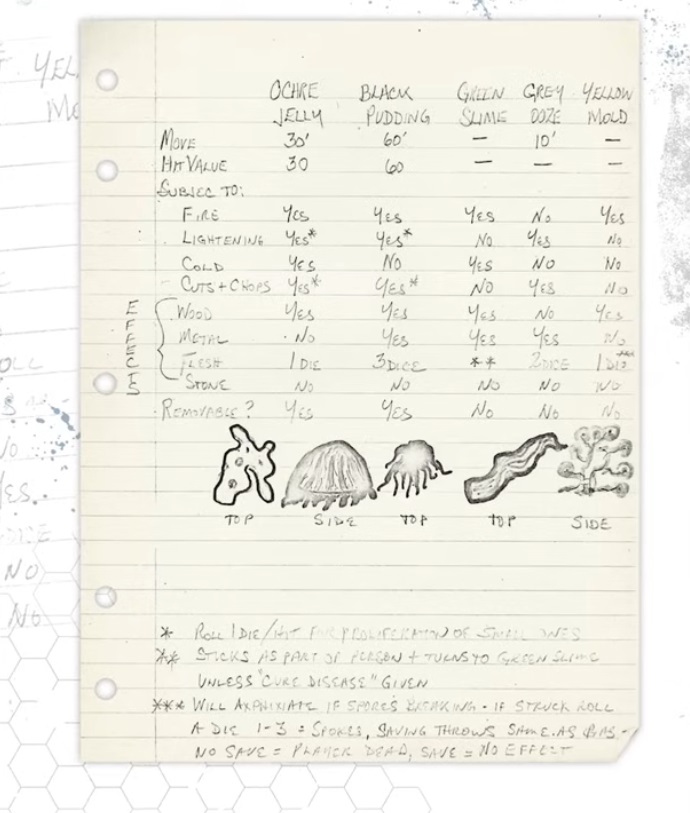 OCHRE BLACK GREEN GREY YELLOW
JELLY PUDDING SLIME OOZE MOLD
MOVE 30' 60' — 10' —
HIT VALUE 30 60 — — —
SUBJEC TO:
FIRE YES YES YES NO YES
LIGHTENING YES* YES* NO YES NO
COLD YES NO YES NO NO
CUTS + CHOPS YES* YES* NO YES NO
EFFECTS
WOOD YES YES YES NO YES
METAL NO YES YES YES NO
FLESH 1 DIE 3 DICE ** 2 DICE 1 DIE***
STONE NO NO NO NO NO
REMOVABLE? YES YES NO NO NO
TOP SIDE TOP TOP SIDE
* ROLL 1 DIE/HIT FOR PROLIFERATION OF SMALL ONES
** STICKS AS PART OF PERSON + TURNS TO GREEN SLIME
UNLESS "CURE DISEASE" GIVEN
*** WILL IF SPORES BREAKING - IF STRUCK ROLL
A DIE 1-3 = SPORES, SAVING THROWS SAME AS
NO SAVE = PLAYER DEAD, SAVE = NO EFFECT
YEL
MO
NO
YES
DICE
NO
NO